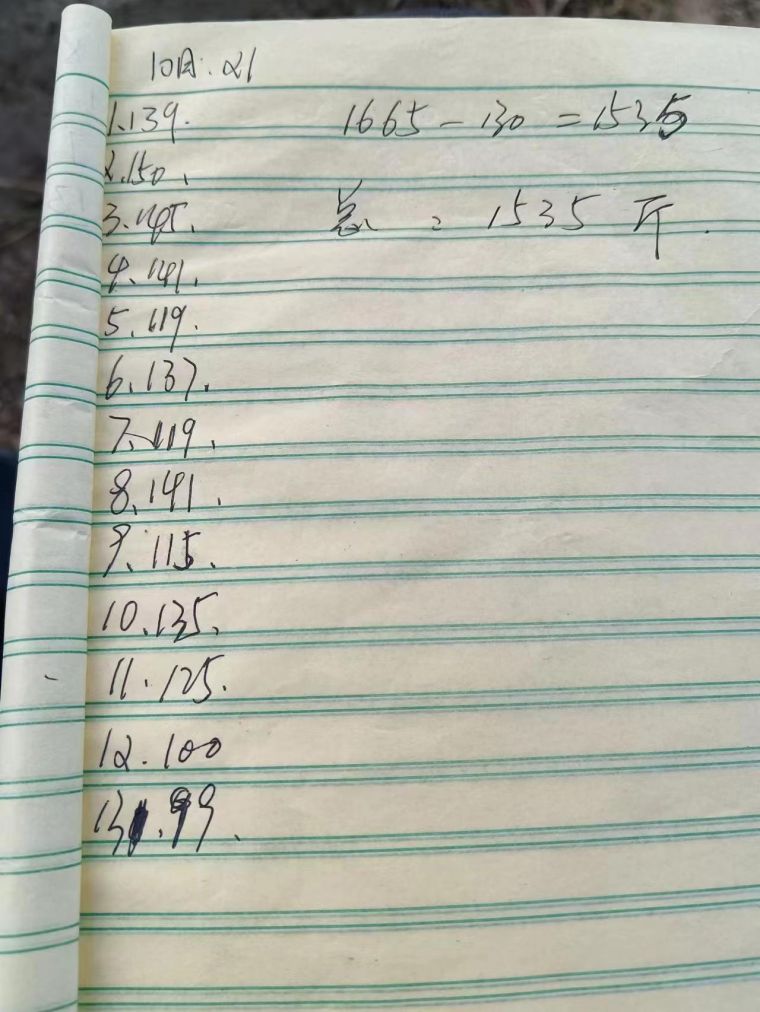 10月.21
1.139.
1665-130=1535
2.150.
3.145.
总:1535斤.
4.141.
5.119.
6.137.
7.119.
8.141.
9.115.
10.135.
11.125.
12.100
13.99.